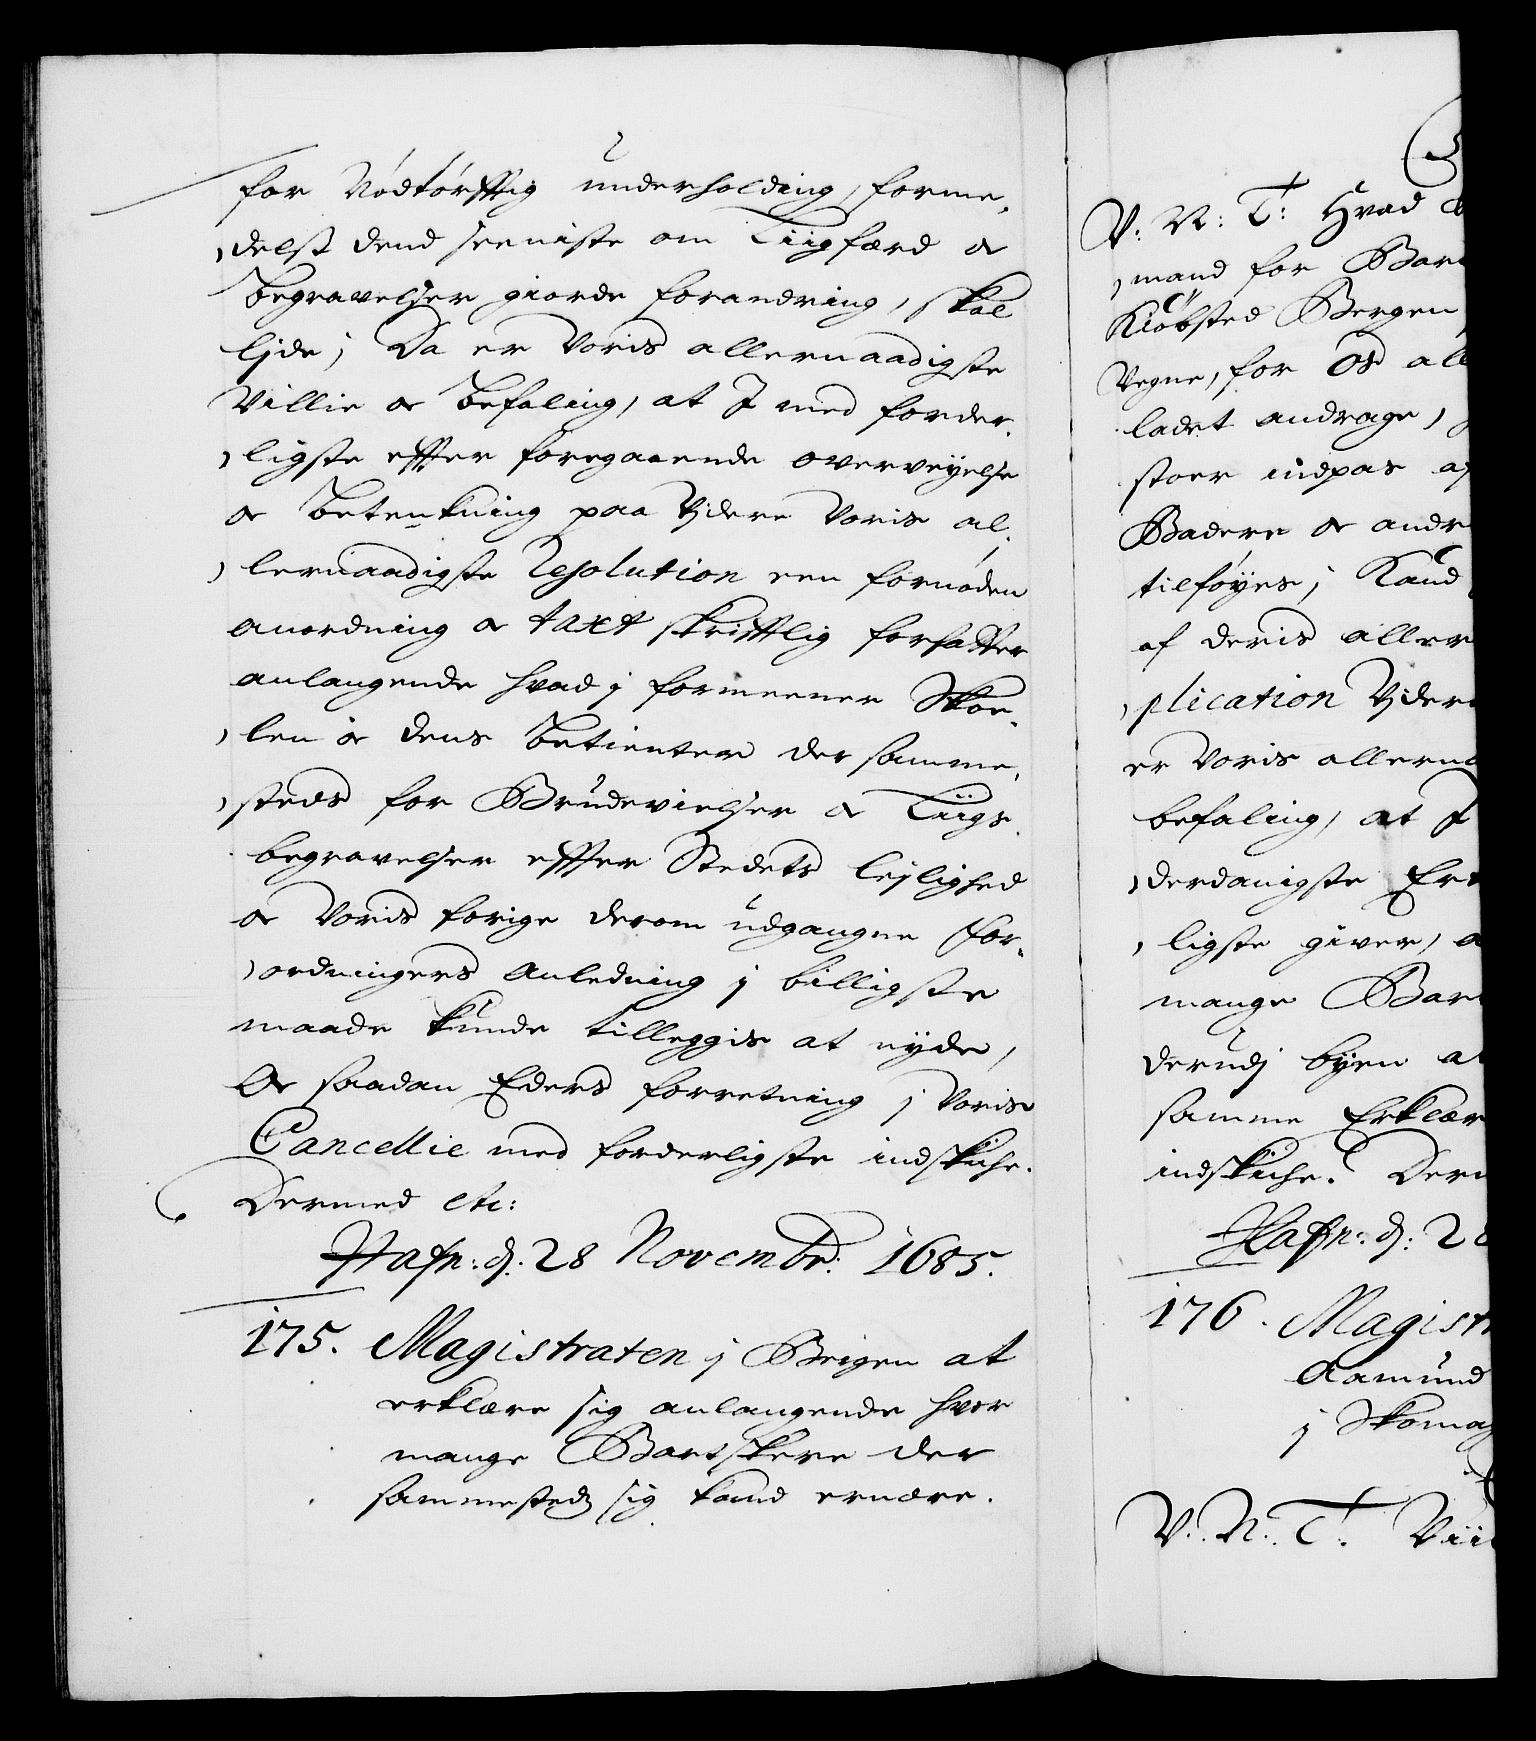 for Nödtörfftig underholding, forme,
,delst dend seeniste om Liigfærd oc
begravelser giorde forandring, skal
lide; Da er Voris allernaadigste
Villie oc befaling, at I med forder,
,ligste effter foregaaende overveyelse
oc betenkning paa Videre Voris al,
,lernaadigste Resolution een fornøden
anordning oc taxt skrifftlig forfatter
anlangende hvad j formeener Skoe,
,len oc dens betienter der samme,
,steds for Brudevielser oc Liigs
begravelser effter Stedets lejlighed
oc Voris forige derom udgangne for,
,ordningers anledning j billigste
maade kunde tilleggis at nyde,
Oc saadan Eders forretning j Voris
Cancellie med forderligste indskiche.
Dermed etc:
Hafn: d. 28 Novembr: 1685.
175. Magistraten j Bergen at
erklære sig anlangende hvor
mange Bartskere der
sammesteds sig kand ernære.
V: N: T: Hvad
,mand for Bar
Kiöbsted Bergen
Vegne, for Os all
ladet andrage,
stoer indpas af
Badere oc andr
tilföyes; Kand
af deris aller
,plication Videre
er Voris allerna
befaling, at I
,derdanigste Er
,ligste giver, a
mange Bar
derudj byen a
samme Erklær
indskiche. Derm
Hafn: d: 28
176. Magistr
Aamund
j Skomag
V. N. T. Vii